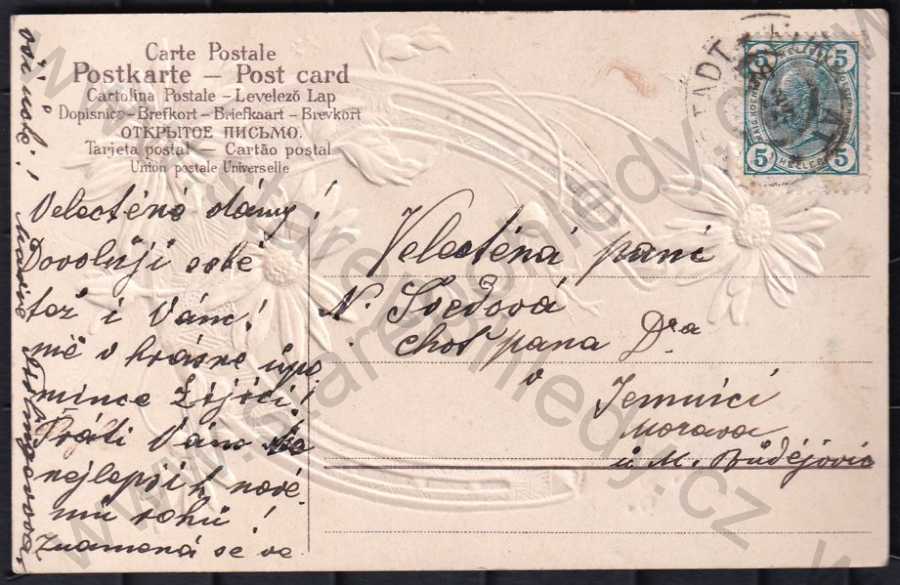 Carte Postale
Postkarte – Post card
Cartolina Postale – Levelező Lap
Dopisnice – Brefkort – Briefkaart – Brevkort
ОТКРЫТОЕ ПИСЬМО.
Tarjeta postal – Cartão postal
Union postale Universelle
Velectěné dámy!
Dovoluji sobě
též i Vám!
mě v krásne úpo
mince žijící!
Přáti Vám
nejlepší k nové
mu roku!
Znamená se ve
vší úctě!
Velectěná paní
N. Švedová
choť pana Dra
v
Jemnici
Morava
u M. Budějovic
5 5
5 HELLER 5
www.starepohledy.cz